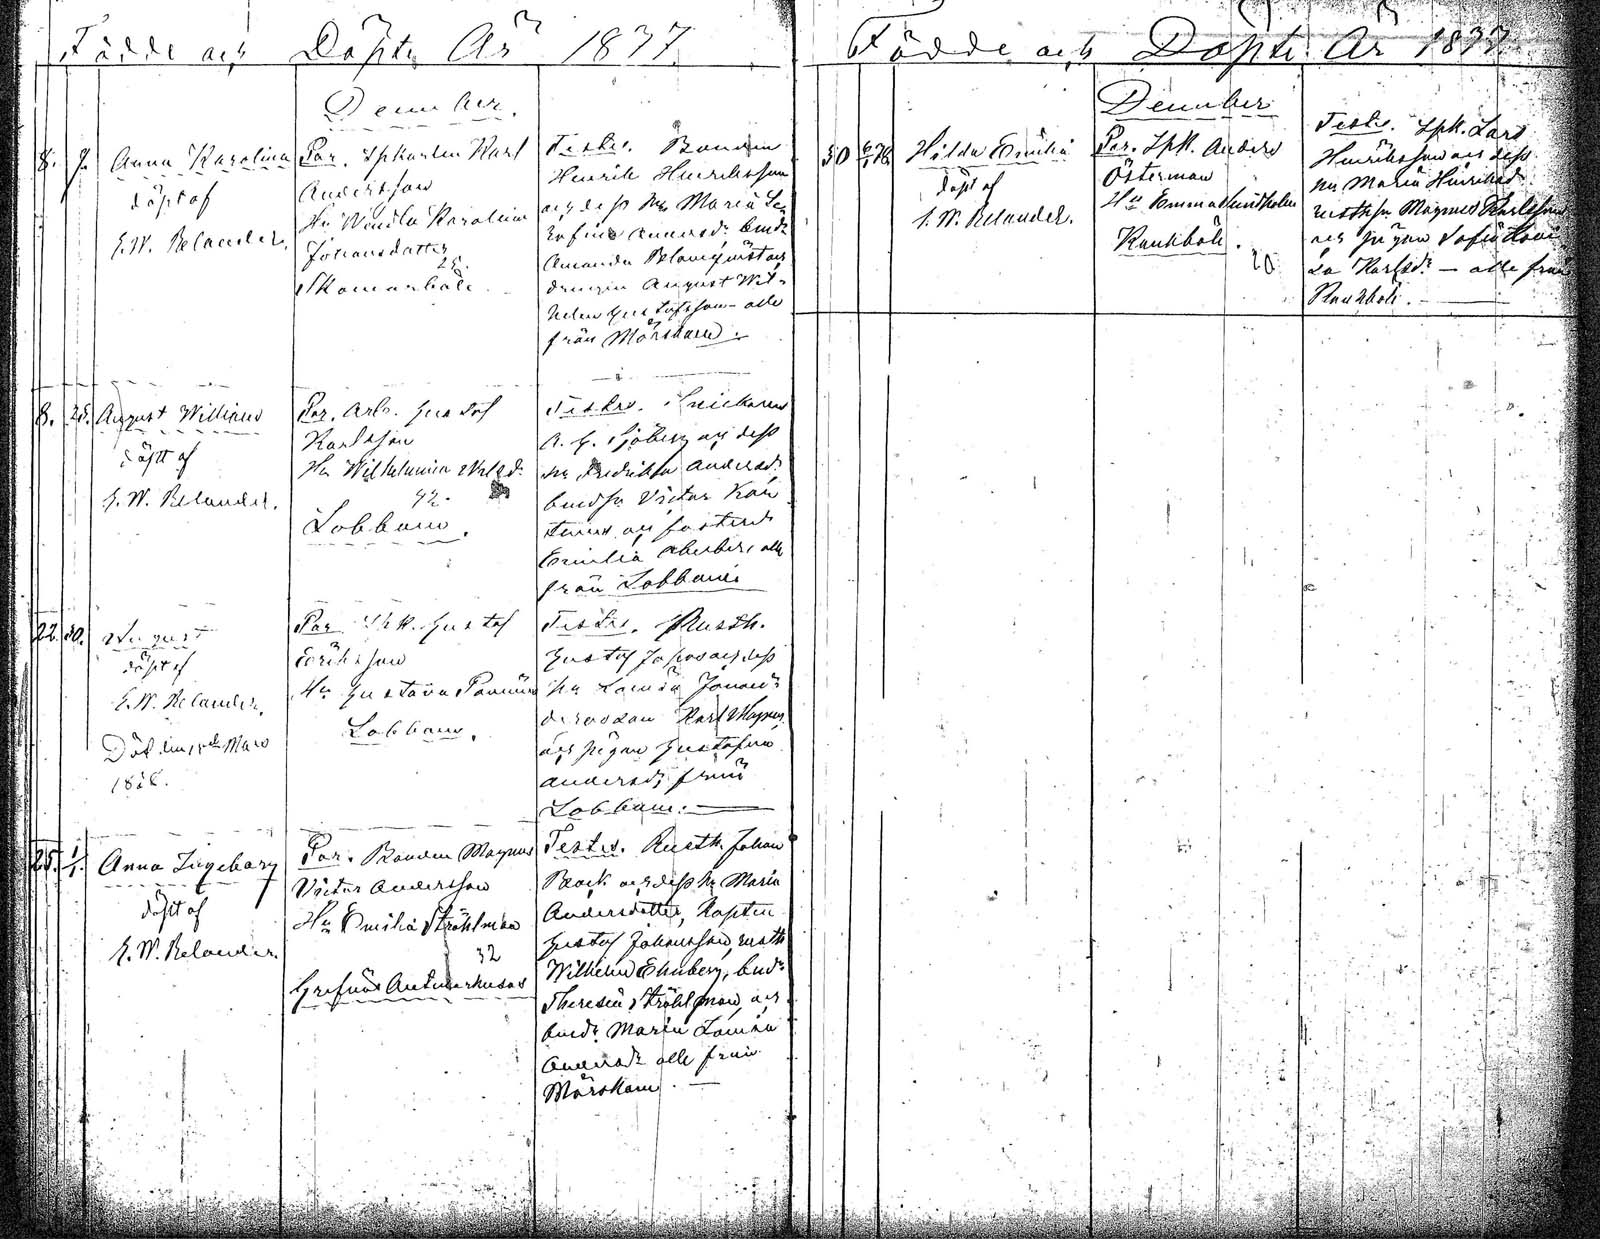 Födde och Döpte År 1877.
December.
8. 9. Anna Karolina
döpt af
E. W. Relander.
Par. Spkarlen Karl
Andersson
Hu Wendla Karolina
Johansdotter
25.
Skomarböle
Testes. Bonden
Henrik Henriksson
och dess hu Maria Se-
rafina Andersdr bondr
Amanda Blomqvist och
drengen August Wil-
helm Gustafsson alle
från Mörskom.
8. 25. August William
döpt af
E. W. Relander.
Par. Arb. Gustaf
Karlsson
Hu Wilhelmina
42.
Lobbom.
Testes. Snickaren
A. G. Sjöberg och dess
hu Fredrika Andersd.
bondsn Victor
och
Emilia alle
från Lobbom
22. 30. August
döpt af
E. W. Relander.
Död den Mars
1878.
Par. Spk. Gustaf
Eriksson
Hu Gustava
Lobbom.
Testes. Rusth.
Gustaf och dess
hu Lovisa
Karl Magnus
och pigan Gustafva
Andersd. från
Lobbom.
25. 1/1. Anna Ingeborg
döpt af
E. W. Relander.
Par. Bonden Magnus
Victor Andersson
Hu Emilia Ströhlman
32
Grefnäs Antmarkusas
Testes. Rusth. Johan
Bäck och dess hu Maria
Andersdotter, Kapten
Gustaf Johansson, rusth
Wilhelm Ehnberg, bondr
Theresia Ströhlman, och
bondr Maria Lovisa
Andersdr alle från
Mörskom.
Födde och Döpte År 1877
December
30 6/1 78 Hilda Emilia
döpt af
E. W. Relander.
Par. Spk. Anders
Österman
Hu Emma Lindholm
Kankböle.
20
Testes. Spk. Lars
Henriksson och dess
hu Maria Henriksd.
rusthsn Magnus Karlsson
och pigan Sofia Lovi-
sa Karlsdr — alle från
Kankböle.